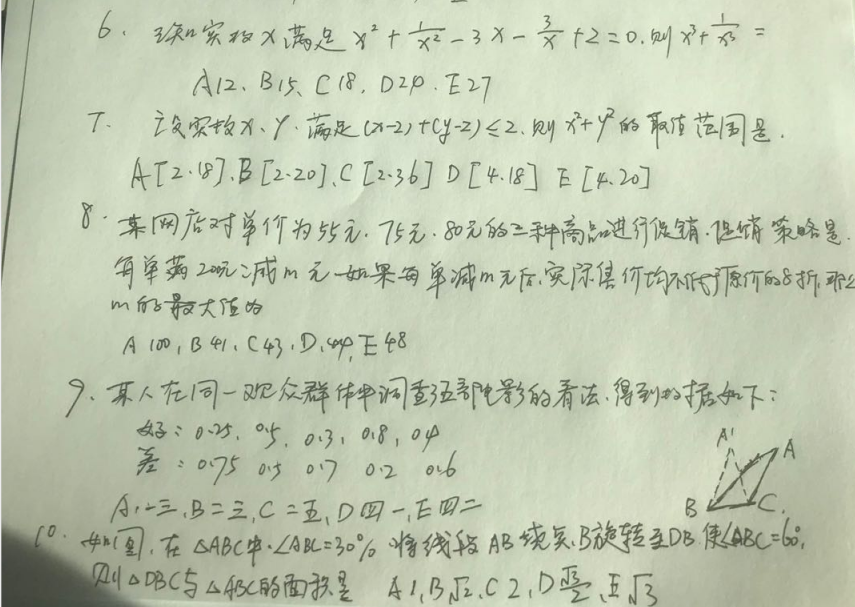 6. 已知实数x满足 x²+1/x²-3x-3/x+2=0.则x³+1/x³=
A12. B15、C18. D20. E27
7. 设实数x、y.满足(x-2)+(y-2)≤2.则x²+y²的取值范围是.
A[2.18].B[2.20].C[2.36] D[4.18] E[4.20]
8. 某网店对单价为55元.75元.80元的三种商品进行促销.促销策略是
每单满200元减m元 如果每单减m元后.实际售价均不低于原价的8折.那么
m的最大值为
A 100, B 41, C 43, D, 44, E 48
9、某人在同一观众群体中调查5五部电影的看法.得到数据如下:
好: 0.25, 0.5, 0.3, 0.8, 0.4
差: 0.75 0.5 0.7 0.2 0.6
A,一三,B二三,C二五,D四一,E四二
A' A
B C.
10. 如图,在△ABC中.∠ABC=30% 将线段AB绕点B旋转至DB 使∠ABC=60,
则△DBC与△ABC的面积是 A 1, B√2, C 2, D √3/2, E√3